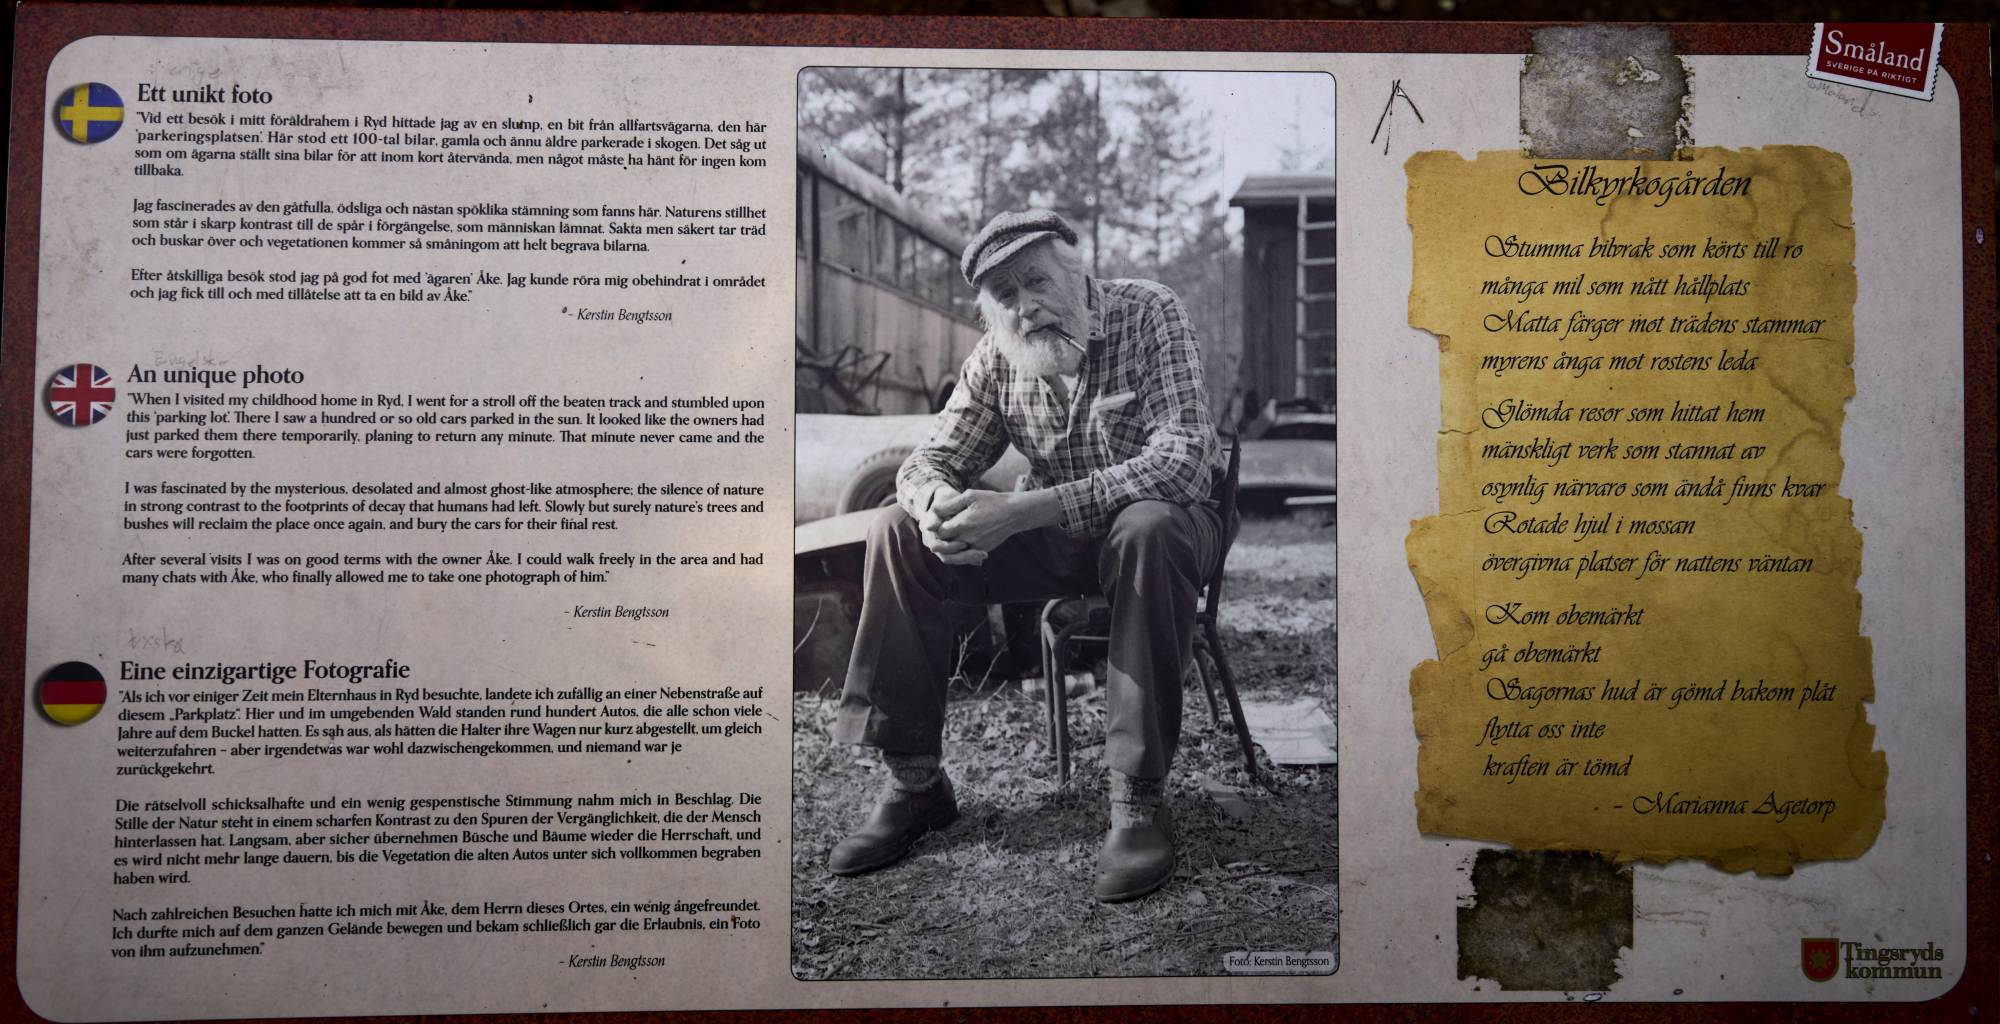 Ett unikt foto
"Vid ett besök i mitt föräldrahem i Ryd hittade jag av en slump, en bit från allfartsvägarna, den här
'parkeringsplatsen'. Här stod ett 100-tal bilar, gamla och ännu äldre parkerade i skogen. Det såg ut
som om ägarna ställt sina bilar för att inom kort återvända, men något måste ha hänt för ingen kom
tillbaka.
Jag fascinerades av den gåtfulla, ödsliga och nästan spöklika stämning som fanns här. Naturens stillhet
som står i skarp kontrast till de spår i förgängelse, som människan lämnat. Sakta men säkert tar träd
och buskar över och vegetationen kommer så småningom att helt begrava bilarna.
Efter åtskilliga besök stod jag på god fot med 'ägaren' Åke. Jag kunde röra mig obehindrat i området
och jag fick till och med tillåtelse att ta en bild av Åke."
- Kerstin Bengtsson
Engelska
An unique photo
"When I visited my childhood home in Ryd, I went for a stroll off the beaten track and stumbled upon
this 'parking lot'. There I saw a hundred or so old cars parked in the sun. It looked like the owners had
just parked them there temporarily, planing to return any minute. That minute never came and the
cars were forgotten.
I was fascinated by the mysterious, desolated and almost ghost-like atmosphere; the silence of nature
in strong contrast to the footprints of decay that humans had left. Slowly but surely nature's trees and
bushes will reclaim the place once again, and bury the cars for their final rest.
After several visits I was on good terms with the owner Åke. I could walk freely in the area and had
many chats with Åke, who finally allowed me to take one photograph of him."
- Kerstin Bengtsson
Eine einzigartige Fotografie
"Als ich vor einiger Zeit mein Elternhaus in Ryd besuchte, landete ich zufällig an einer Nebenstraße auf
diesem „Parkplatz". Hier und im umgebenden Wald standen rund hundert Autos, die alle schon viele
Jahre auf dem Buckel hatten. Es sah aus, als hätten die Halter ihre Wagen nur kurz abgestellt, um gleich
weiterzufahren – aber irgendetwas war wohl dazwischengekommen, und niemand war je
zurückgekehrt.
Die rätselvoll schicksalhafte und ein wenig gespenstische Stimmung nahm mich in Beschlag. Die
Stille der Natur steht in einem scharfen Kontrast zu den Spuren der Vergänglichkeit, die der Mensch
hinterlassen hat. Langsam, aber sicher übernehmen Büsche und Bäume wieder die Herrschaft, und
es wird nicht mehr lange dauern, bis die Vegetation die alten Autos unter sich vollkommen begraben
haben wird.
Nach zahlreichen Besuchen hatte ich mich mit Åke, dem Herrn dieses Ortes, ein wenig angefreundet.
Ich durfte mich auf dem ganzen Gelände bewegen und bekam schließlich gar die Erlaubnis, ein Foto
von ihm aufzunehmen."
- Kerstin Bengtsson
Foto: Kerstin Bengtsson
Småland
SVERIGE PÅ RIKTIGT
Småland
Bilkyrkogården
Stumma bilvrak som körts till ro
många mil som nått hållplats
Matta färger mot trädens stammar
myrens ånga mot rostens leda
Glömda resor som hittat hem
mänskligt verk som stannat av
osynlig närvaro som ändå finns kvar
Rotade hjul i mossan
övergivna platser för nattens väntan
Kom obemärkt
gå obemärkt
Sagornas hud är gömd bakom plåt
flytta oss inte
kraften är tömd
- Marianna Agetorp
Tingsryds
kommun